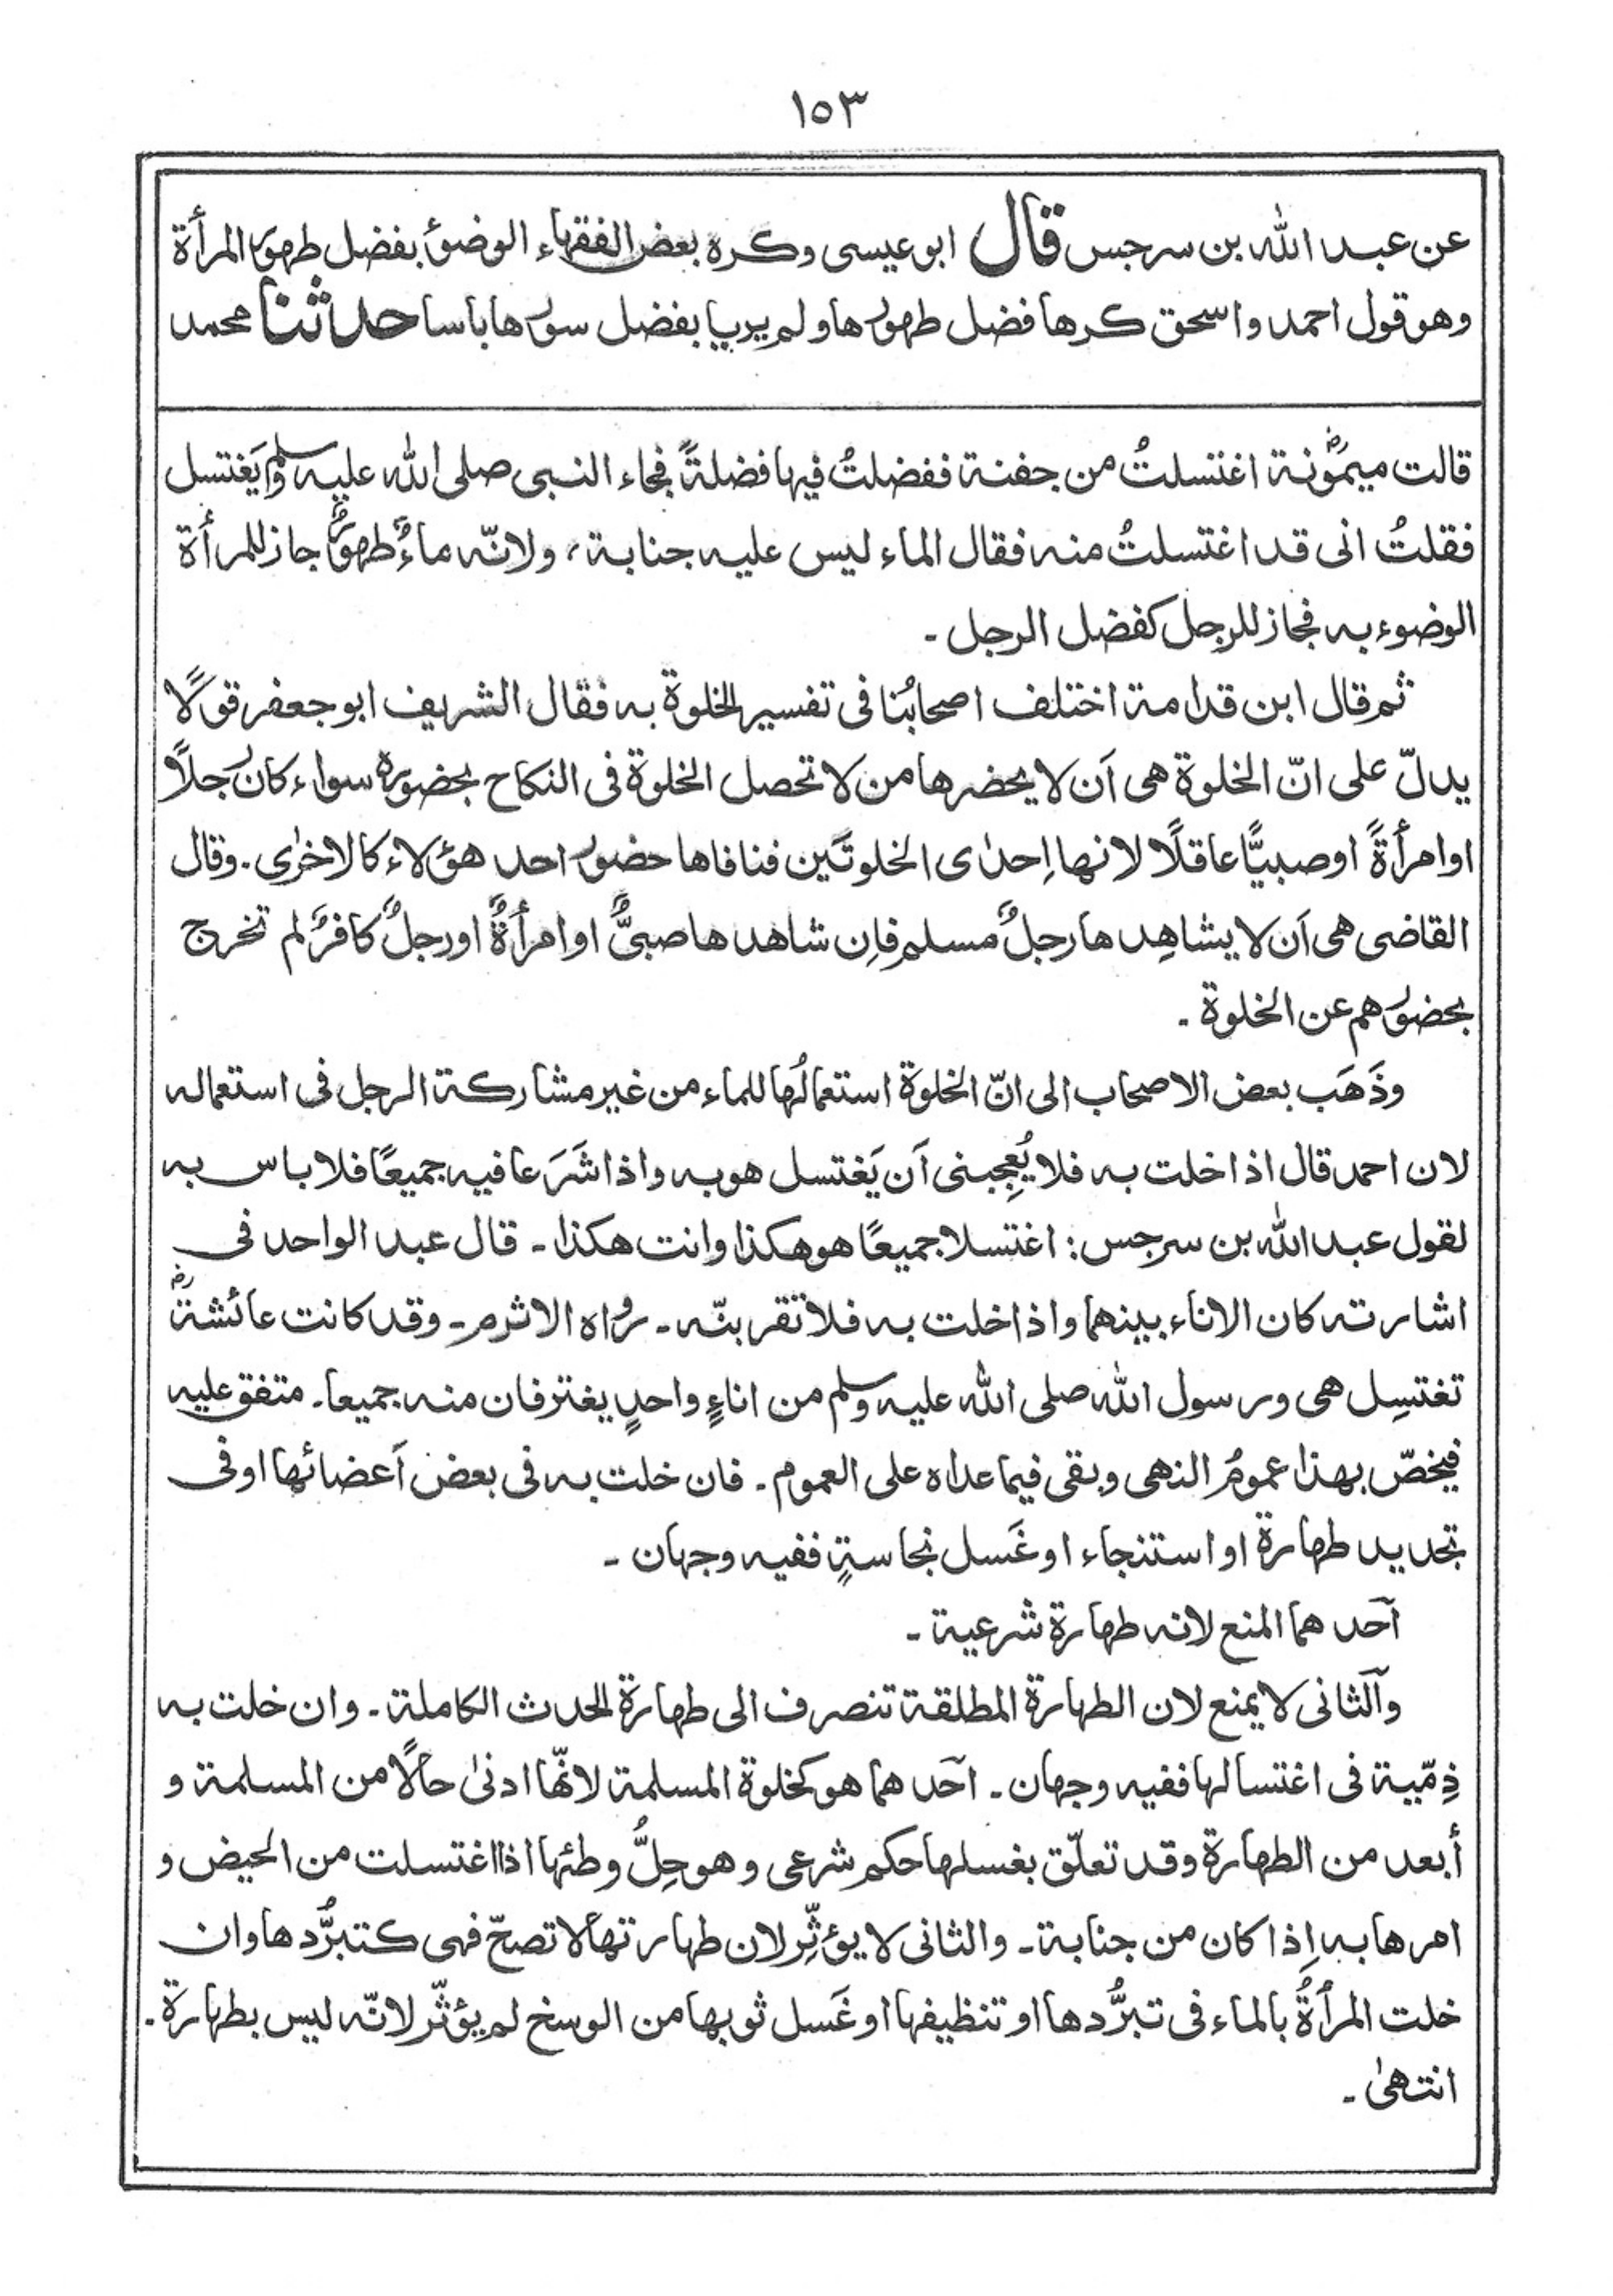 ١٥٣
عن عبد الله بن سرجس قال ابو عيسى وكره بعض الفقهاء الوضوٴ بفضل طهور المرأة
وهو قول احمد واسحق كرها فضل طهورها ولم يريا بفضل سورها باسا حدثنا محمد
قالت ميمونةؓ اغتسلتُ من جفنة ففضلتُ فيها فضلةً فجاء النبى صلى الله عليه وسلم يَغتسل
فقلتُ انى قد اغتسلتُ منه فقال الماء ليس عليه جنابة، ولانّه ماءٌ طهورٌ جاز للمرأة
الوضوء به فجاز للرجل كفضل الرجل ـ
ثم قال ابن قدامة اختلف اصحابُنا فى تفسير الخلوة به فقال الشريف ابو جعفر قولًا
يدلّ على انّ الخلوة هى اَن لا يحضرها من لا تحصل الخلوة فى النكاح بحضوره سواء كان رجلاً
او امرأةً او صبيًّا عاقلًا لانها اِحدٰى الخلوتَين فنافاها حضور احد هؤلاء كالاخرٰى. وقال
القاضى هى اَن لا يشاهِدها رجلٌ مسلم فاِن شاهدها صبىٌّ او امرأةٌ او رجلٌ كافرٌ لم تخرج
بحضورهم عن الخلوة ـ
وذَهَب بعض الاصحاب الى انّ الخلوة استعمالُها للماء من غير مشاركة الرجل فى استعماله
لان احمد قال اذا خلت به فلا يُعجِبنى اَن يَغتسل هو به واذا شَرَعا فيه جميعًا فلا باس به
لقول عبد الله بن سرجس: اغتسلا جميعًا هو هكذا وانت هكذا ـ قال عبد الواحد فى
اشارته كان الاناء بينهما واذا خلت به فلا تقربنّه ـ رواه الاثرم ـ وقد كانت عائشةؓ
تغتسِل هى ورسول الله صلى الله عليه وسلم من اناءٍ واحدٍ يغترفان منه جميعا. متفق عليه
فيخصّ بهذا عمومُ النهى وبقى فيما عداه على العموم ـ فان خلت به فى بعض اَعضائها او فى
تجديد طهارة او استنجاء او غَسل نجاسةٍ ففيه وجهان ـ
اَحدهما المنع لانه طهارة شرعية ـ
واَلثانى لا يمنع لان الطهارة المطلقة تنصرف الى طهارة الحدث الكاملة ـ وان خلت به
ذِمّية فى اغتسالها ففيه وجهان ـ احَدهما هو كخلوة المسلمة لانّها ادنىٰ حالًا من المسلمة و
أبعد من الطهارة وقد تعلّق بغسلها حكم شرعى وهو حِلُّ وطئها اذا اغتسلت من الحيض و
امرها به اِذا كان من جنابة ـ والثانى لا يؤثِّر لان طهارتها لا تصحّ فهى كتبرُّدها وان
خلت المرأةُ بالماء فى تبرُّدها او تنظيفها او غَسل ثوبها من الوسخ لم يؤثّر لانّه ليس بطهارة ـ
انتهىٰ ـ